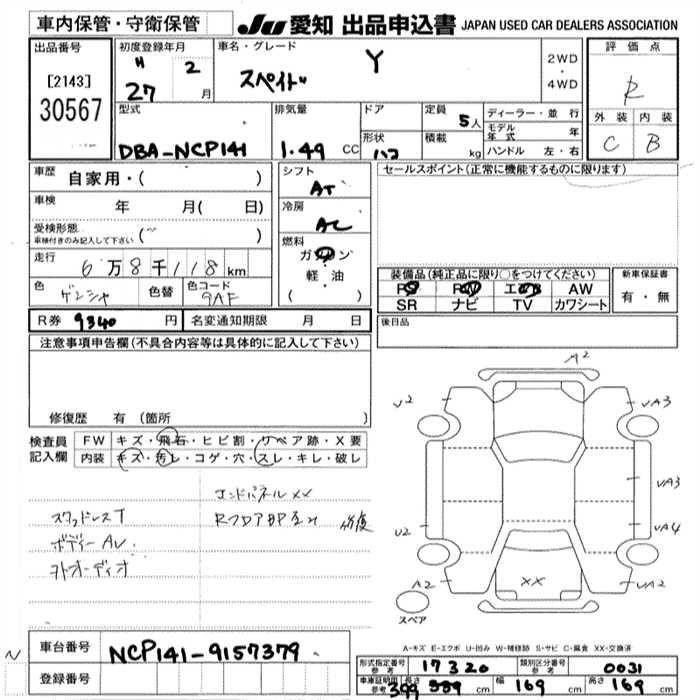 車内保管・守衛保管
JU 愛知 出品申込書 JAPAN USED CAR DEALERS ASSOCIATION
出品番号
[2143]
30567
初度登録年月
H
27 2 月
車名・グレード
スペイド Y
2WD
・
4WD
評価点
R
外装 内装
C B
型式
DBA-NCP141
排気量
1.49 CC
ドア
形状
ハコ
定員
5人
積載
kg
ディーラー・並行
モデル年式 年
ハンドル 左・右
車歴
自家用・( )
車検
年 月( 日)
受検形態
車検付きのみ記入して下さい ( )
走行
6万8千118km
色
ゲンシャ
色替
色コード
9AF
シフト
AT
冷房
AC
燃料
ガソリン
・
軽・油
( )
セールスポイント(正常に機能するものに限ります)
装備品(純正品に限り○をつけてください)
PS PW エアB AW
SR ナビ TV カワシート
新車保証書
有・無
後日品
R券 9340 円
名変通知期限 月 日
注意事項申告欄(不具合内容等は具体的に記入して下さい)
修復歴 有(箇所 )
検査員
記入欄
FW キズ・飛石・ヒビ割・リペア跡・X要
内装 キズ・汚レ・コゲ・穴・スレ・キレ・破レ
エンドパネルXX
スタッドレスT
RフロアBP歪ミ 修復
ボディーAU
外オーディオ
A2
U2
UA3
UA3
U2
UA4
A2
XX
UA2
スペア
A-キズ E-エクボ U-凹み W-補修跡 S-サビ C-腐食 XX-交換済
車台番号
NCP141-9157379
登録番号
N
型式指定番号
参考
17320
類別区分番号
参考
0031
車庫証明用
参考
長さ 399 cm
幅 169 cm
高さ 169 cm